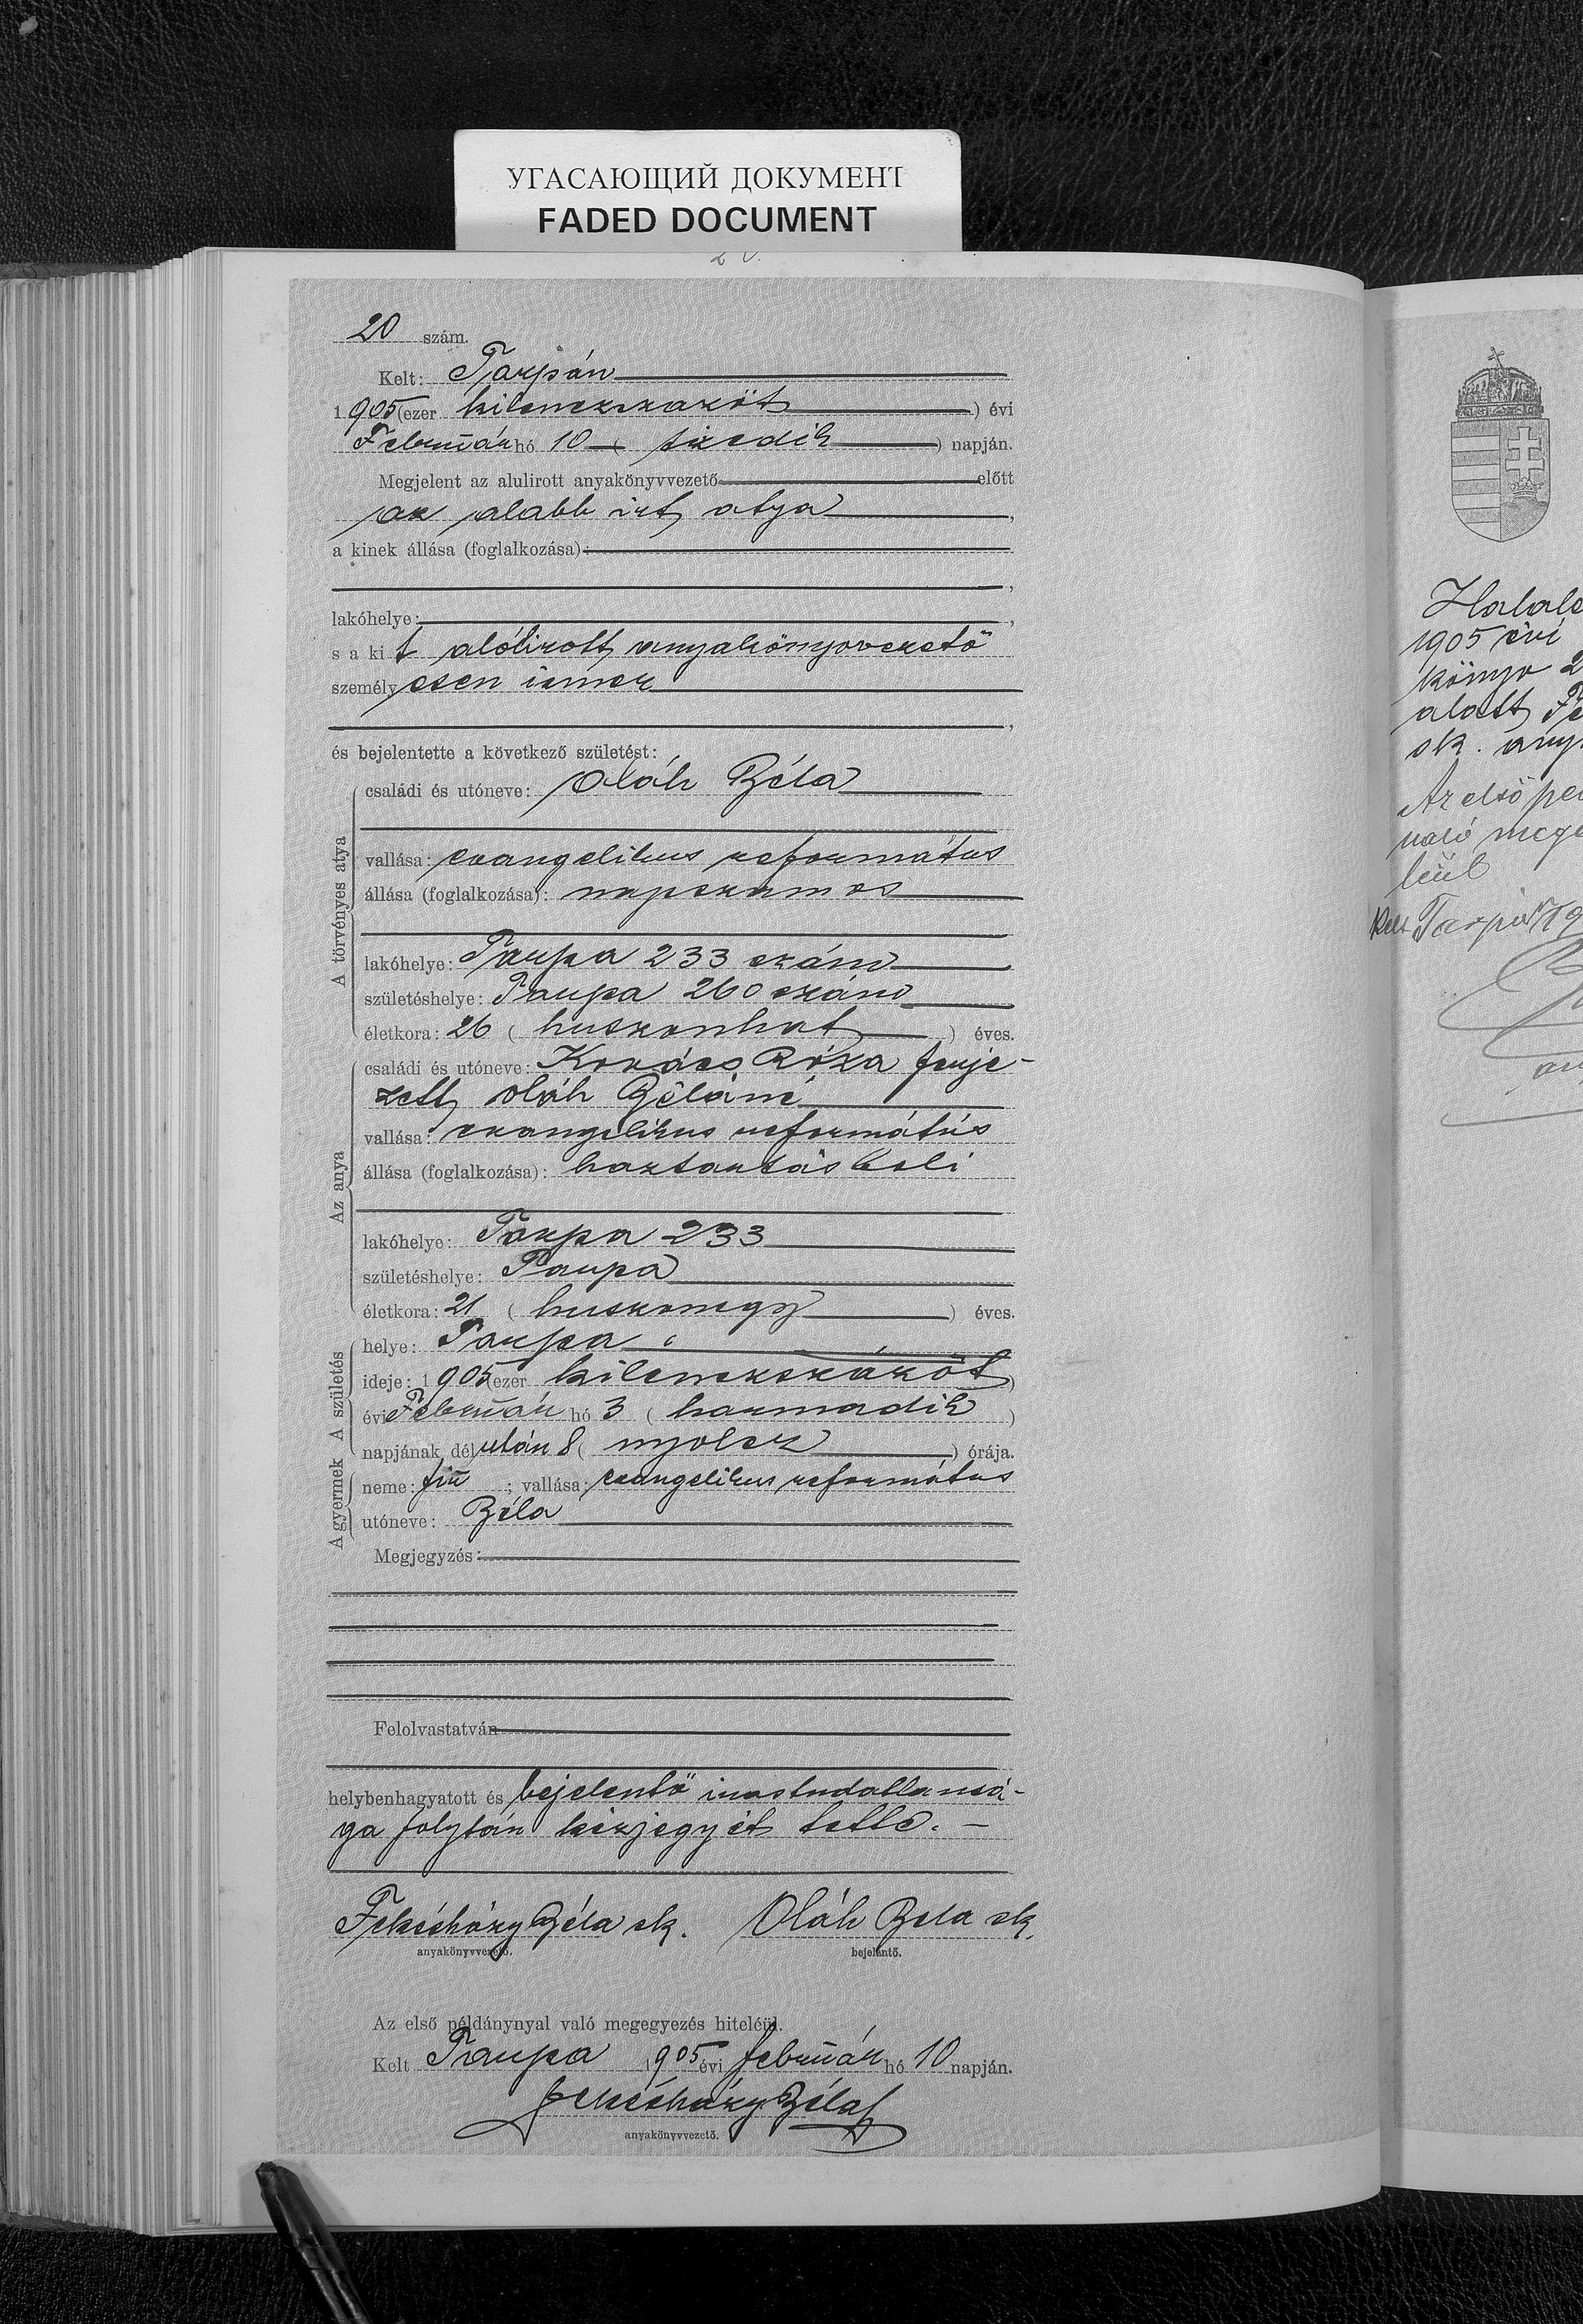 УГАСАЮЩИЙ ДОКУМЕНТ
FADED DOCUMENT
20 szám.
Kelt: Tarpán
1905 (ezer kilenczszázöt) évi
Február hó 10 (tizedik) napján.
Megjelent az alulirott anyakönyvvezető előtt
az alább irt atya,
a kinek állása (foglalkozása):
lakóhelye:
s a kit alólirott anyakönyvvezető
személyesen ismer
és bejelentette a következő születést:
A törvényes atya
családi és utóneve: Oláh Béla
vallása: evangelikus református
állása (foglalkozása): napszámos
lakóhelye: Tarpa 233 szám
születéshelye: Tarpa 260 szám
életkora: 26 (huszonhat) éves.
Az anya
családi és utóneve: Kovács Róza férje-
zett Oláh Béláné
vallása: evangelikus református
állása (foglalkozása): háztartásbeli
lakóhelye: Tarpa 233
születéshelye: Tarpa
életkora: 21 (huszonegy) éves.
A születés
helye: Tarpa
ideje: 1905 (ezer kilenczszázöt)
évi Február hó 3 (harmadik)
napjának délután 8 (nyolcz) órája.
A gyermek
neme: fiú; vallása: evangelikus református
utóneve: Béla
Megjegyzés:
Felolvastatván
helybenhagyatott és bejelentő irástudatlansá-
ga folytán kézjegyét tette. –
Fekésházy Béla sk. Oláh Bela sk.
anyakönyvvezető. bejelentő.
Az első példánynyal való megegyezés hiteléül.
Kelt Tarpa 1905 évi február hó 10 napján.
Fekésházy Béla
anyakönyvvezető.
1905 évi
könyv 2
alatt
sk.
Az első
való
leül
Kelt Tarpán 19